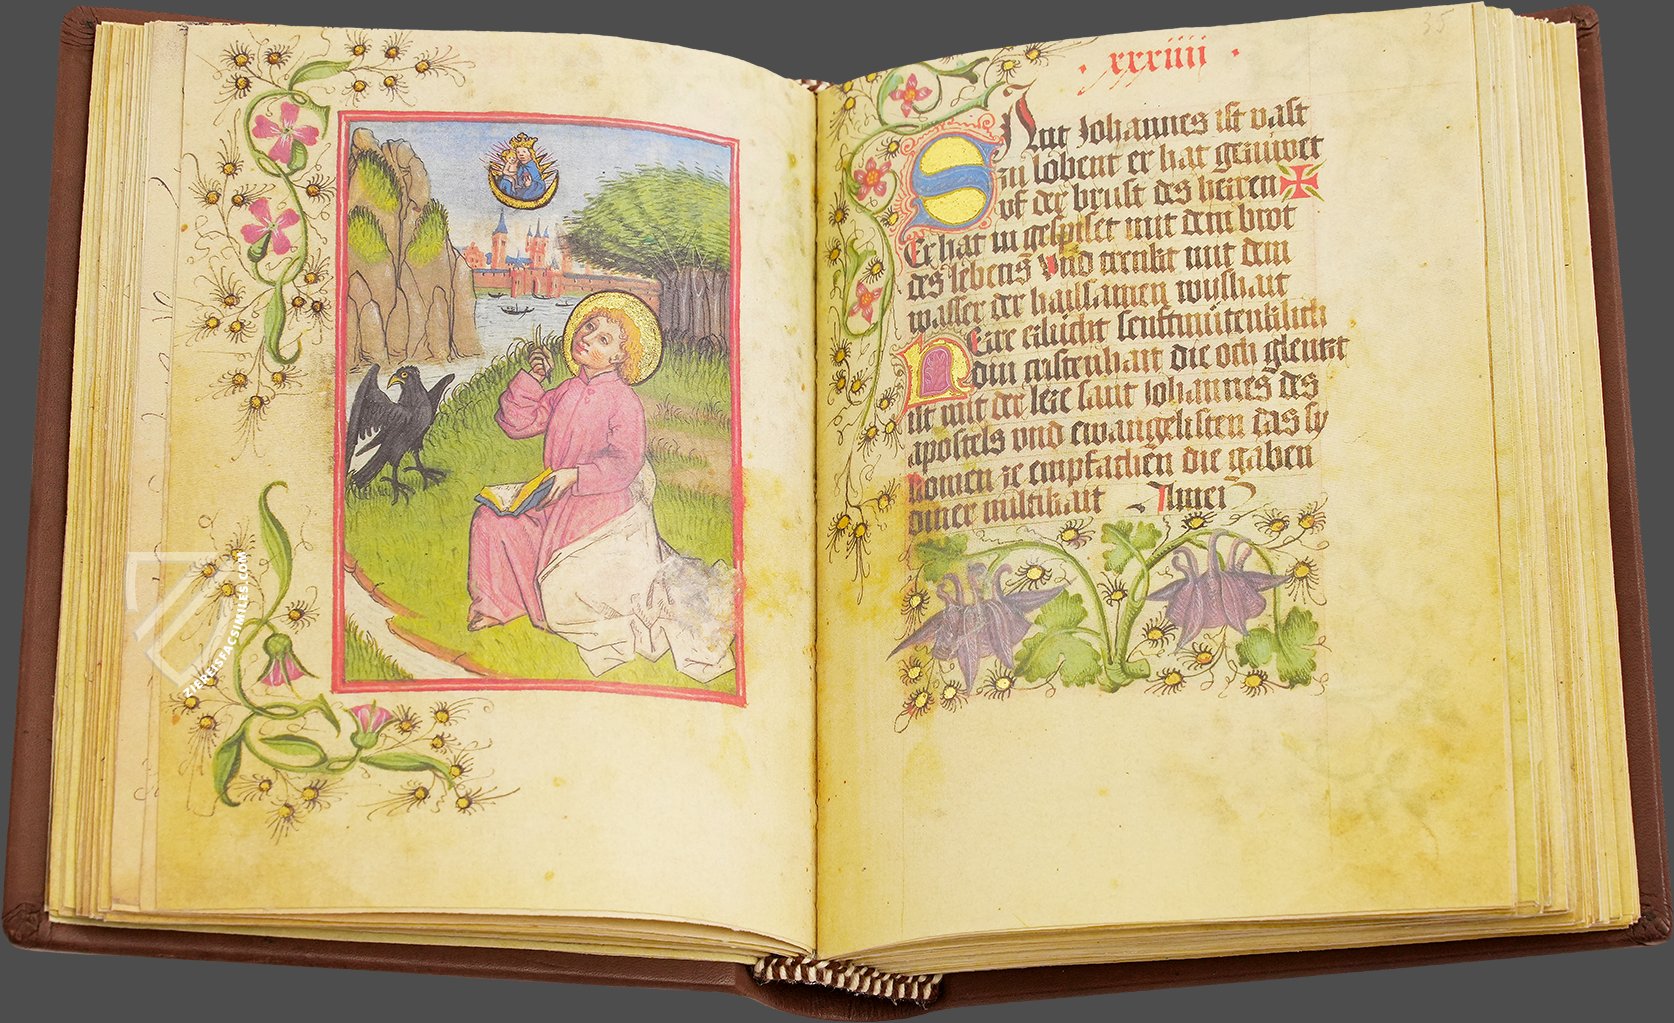 35
· xxxiiii ·
Sant Johannes ist vast
zu lobent er hat geruwet
vf der brust des herren
Er hat in gespiset mit dem brot
des lebens vnd trenkt mit dem
wasser der hailsamen wyshait
Here erlücht senftmütenklich
din cristenhait die och gleutzt
ist mit der lere sant Johannes des
apostels vnd ewangelisten das sy
komen ze empfachen die gaben
diner miltikait Amen
ZIEREISFACSIMILES.COM